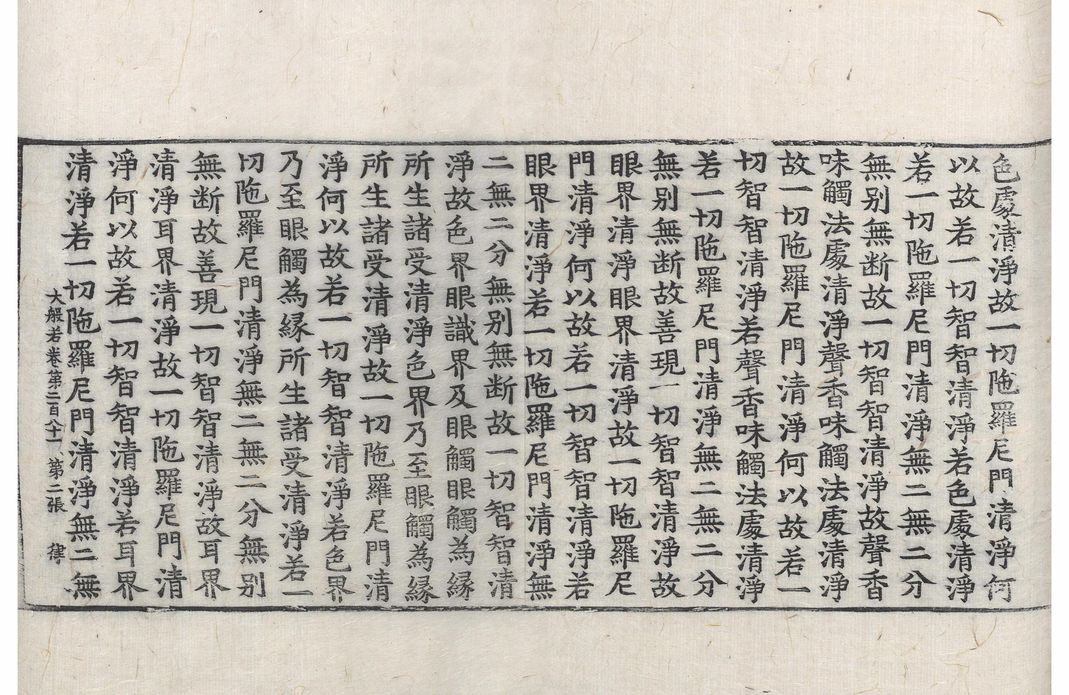 色處清淨故一切陁羅尼門清淨何
以故若一切智智清淨若色處清淨
若一切陁羅尼門清淨無二無二分
無别無断故一切智智清淨故聲香
味觸法處清淨聲香味觸法處清淨
故一切陁羅尼門清淨何以故若一
切智智清淨若聲香味觸法處清淨
若一切陁羅尼門清淨無二無二分
無别無断故善現一切智智清淨故
眼界清淨眼界清淨故一切陁羅尼
門清淨何以故若一切智智清淨若
眼界清淨若一切陁羅尼門清淨無
二無二分無别無断故一切智智清
淨故色界眼識界及眼觸眼觸為縁
所生諸受清淨色界乃至眼觸為縁
所生諸受清淨故一切陁羅尼門清
淨何以故若一切智智清淨若色界
乃至眼觸為縁所生諸受清淨若一
切陁羅尼門清淨無二無二分無别
無断故善現一切智智清淨故耳界
清淨耳界清淨故一切陁羅尼門清
淨何以故若一切智智清淨若耳界
清淨若一切陁羅尼門清淨無二無
大般若卷第二百八十一 第二張 律